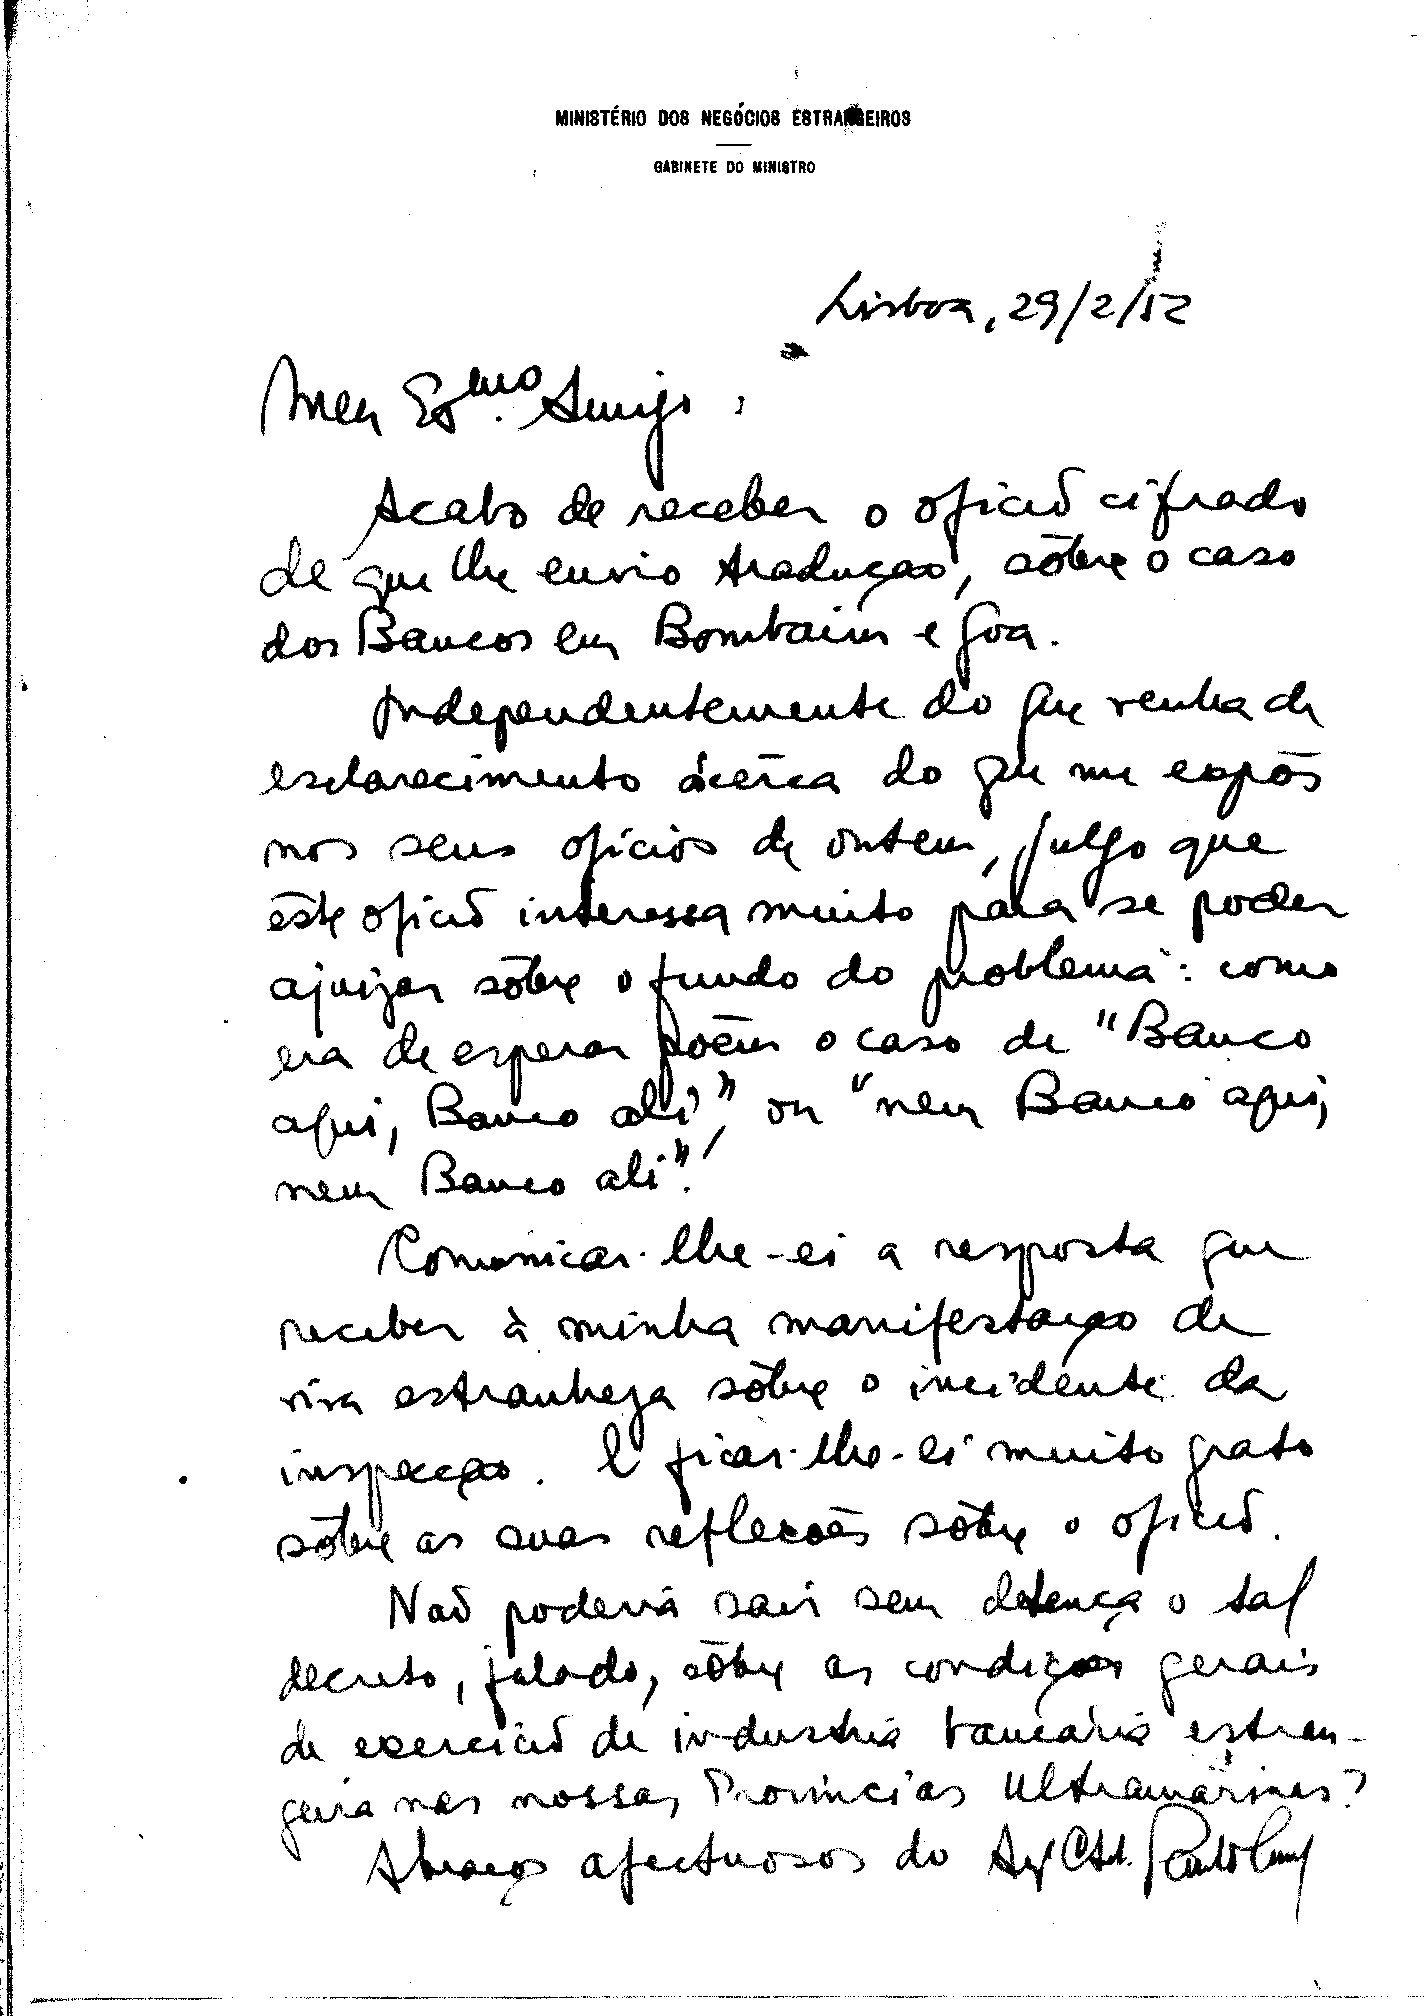 MINISTÉRIO DOS NEGÓCIOS ESTRANGEIROS
GABINETE DO MINISTRO
Lisboa, 29/2/52
Meu Exmo. Amigo,
Acabo de receber o ofício cifrado
de que lhe envio tradução, sôbre o caso
dos Bancos em Bombaim e Goa.
Independentemente do que venha de
esclarecimento ácêrca do que me expôs
nos seus ofícios de ontem, julgo que
êste ofício interessa muito para se poder
ajuizar sôbre o fundo do problema: como
era de esperar põem o caso de "Banco
aqui, Banco ali", ou "nem Banco aqui,
nem Banco ali".
Comunicar-lhe-ei a resposta que
receber à minha manifestação de
viva estranheza sôbre o incidente da
inspecção. E ficar-lhe-ei muito grato
sôbre as suas reflexões sôbre o ofício.
Não poderá sair sem detença o tal
decreto, falado, sôbre as condições gerais
de exercício de indústria bancária estran-
geira nas nossas Províncias Ultramarinas?
Abraços afectuosos do